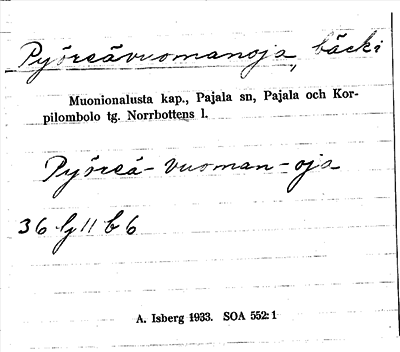 Pyöreävuomanoja, bäcki
Muonionalusta kap., Pajala sn, Pajala och Kor-
pilombolo tg. Norrbottens l.
Pyöreä-vuoman-oja
36 b 6
A. Isberg 1933. SOA 552:1